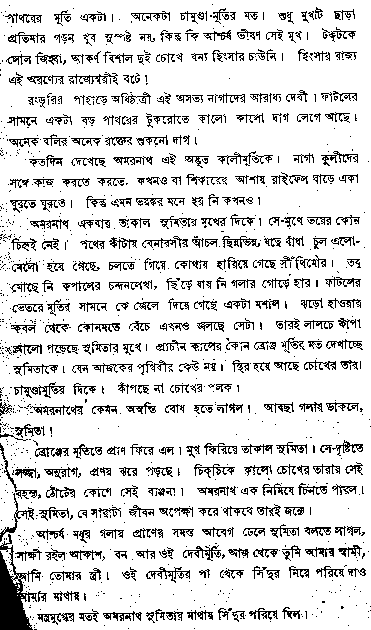 পাথরের মূর্তি একটা। অনেকটা চামুণ্ডা-মূর্তির মত। শুধু মুখটি ছাড়া
প্রতিমার গড়ন খুব সুস্পষ্ট নয়, কিন্তু কি আশ্চর্য ভীষণ সেই মুখ। টকটকে
লোল জিহ্বা, আকর্ণ বিশাল দুই চোখে বন্য হিংসার চাউনি। হিংসার রাজ্য
এই অরণ্যের রাজ্যেশ্বরীই বটে!
রংডুরির পাহাড়ে অধিষ্ঠাত্রী এই অসভ্য নাগাদের আরাধ্য দেবী। ফাটলের
সামনে একটা বড় পাথরের টুকরোতে কালো কালো দাগ লেগে আছে।
অনেক বলির অনেক রক্তের শুকনো দাগ।
কতদিন দেখেছে অমরনাথ এই অদ্ভুত কালীমূর্তিকে। নাগা কুলীদের
সঙ্গে কাজ করতে করতে, কখনও বা শিকারের আশায় রাইফেল ঘাড়ে একা
ঘুরতে ঘুরতে। কিন্তু এমন ভয়ঙ্কর মনে হয় নি কখনও।
অমরনাথ একবার তাকাল সুমিতার মুখের দিকে। সে-মুখে ভয়ের কোন
চিহ্নই নেই। পথের কাঁটায় বেনারসীর আঁচল ছিন্নভিন্ন, যত্নে বাঁধা চুল এলো-
মেলো হয়ে গেছে, চলতে গিয়ে কোথায় হারিয়ে গেছে সিঁথিমৌর। তবু
মোছে নি কপালের চন্দনলেখা, ছিঁড়ে যায় নি গলার গোড়ে হার। ফাটলের
ভেতরে মূর্তির সামনে কে জ্বেলে দিয়ে গেছে একটা মশাল। ঝড়ো হাওয়ার
কবল থেকে কোনমতে বেঁচে এখনও জ্বলছে সেটা। তারই লালচে কাঁপা
আলো পড়েছে সুমিতার মুখে। প্রাচীন কালের কোন ব্রোঞ্জ মূর্তির মত দেখাচ্ছে
সুমিতাকে। যেন আজকের পৃথিবীর কেউ নয়। স্থির হয়ে আছে চোখের তারা
চামুণ্ডামূর্তির দিকে। কাঁপছে না চোখের পলক।
অমরনাথের কেমন অস্বস্তি বোধ হতে লাগল। আবছা গলায় ডাকলে,
সুমিতা!
ব্রোঞ্জের মূর্তিতে প্রাণ ফিরে এল। মুখ ফিরিয়ে তাকাল সুমিতা। সে-দৃষ্টিতে
লজ্জা, অনুরাগ, প্রণয় ঝরে পড়ছে। চিকচিকে কালো চোখের তারায় সেই
রহস্য, ঠোঁটের কোণে সেই ব্যঞ্জনা। অমরনাথ এক নিমিষে চিনতে পারল।
সেই সুমিতা, যে সারাটা জীবন অপেক্ষা করে থাকবে তারই জন্যে।
আশ্চর্য মধুর গলায় প্রাণের সমস্ত আবেগ ঢেলে সুমিতা বলতে লাগল,
সাক্ষী রইল আকাশ, বন আর ওই দেবীমূর্তি, আজ থেকে তুমি আমার স্বামী,
আমি তোমার স্ত্রী। ওই দেবীমূর্তির পা থেকে সিঁদুর নিয়ে পরিয়ে দাও
আমার মাথায়।
মন্ত্রমুগ্ধের মতই অমরনাথ সুমিতার মাথায় সিঁদুর পরিয়ে দিল।